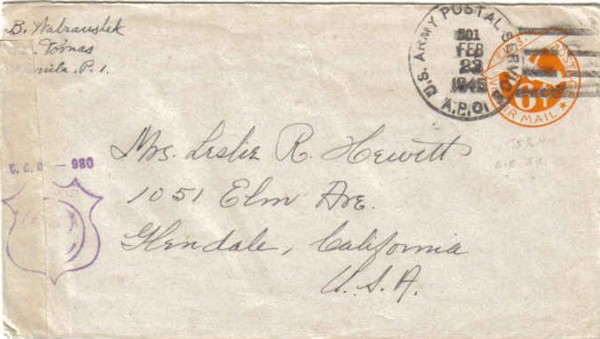 B.
Tomas
nila. P. I.
U.S. ARMY POSTAL SERVICE
501
FEB
22
1945
A.P.O.
6¢
AIR MAIL
- 980
Mrs. Leslie R. Hewitt
1051 Elm Ave.
Glendale, California
U.S.A.